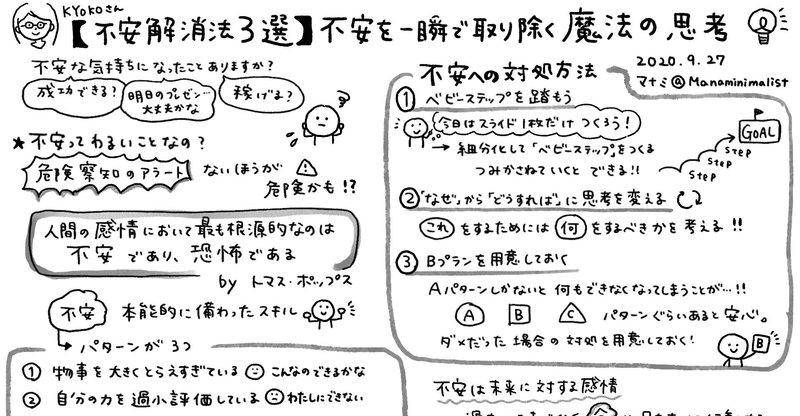 KYOKOさん
【不安解消法3選】不安を一瞬で取り除く魔法の思考
不安な気持ちになったことありますか?
成功できる?
明日のプレゼン…
大丈夫かな
稼げる?
★不安ってわるいことなの?
危険察知のアラート
ないほうが
危険かも!?
人間の感情において最も根源的なのは
不安であり、恐怖である
by トマス・ホップス
不安
本能的に備わったスキル
パターンが3つ
① 物事を大きくとらえすぎている
こんなのできるかな
② 自分の力を過小評価している
わたしにできない
2020.9.27
マナミ@Manaminimalist
不安への対処方法
① ベビーステップを踏もう
今日はスライド1枚だけつくろう!
→ 細分化して「ベビーステップ」をつくる
つみかさねていくとできる!!
STEP
STEP
STEP
GOAL
②「なぜ」から「どうすれば」に思考を変える
これをするためには何をするべきかを考える!!
③ Bプランを用意しておく
Aパターンしかないと何もできなくなってしまうことが…!!
A
B
C
パターンぐらいあると安心。
ダメだった場合の対処を用意しておく!
B
不安は未来に対する感情